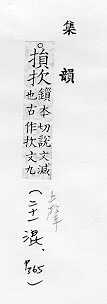 集韻
。損
鎖本切說文減
也古作文九
(二十一)混、
P365
上聲